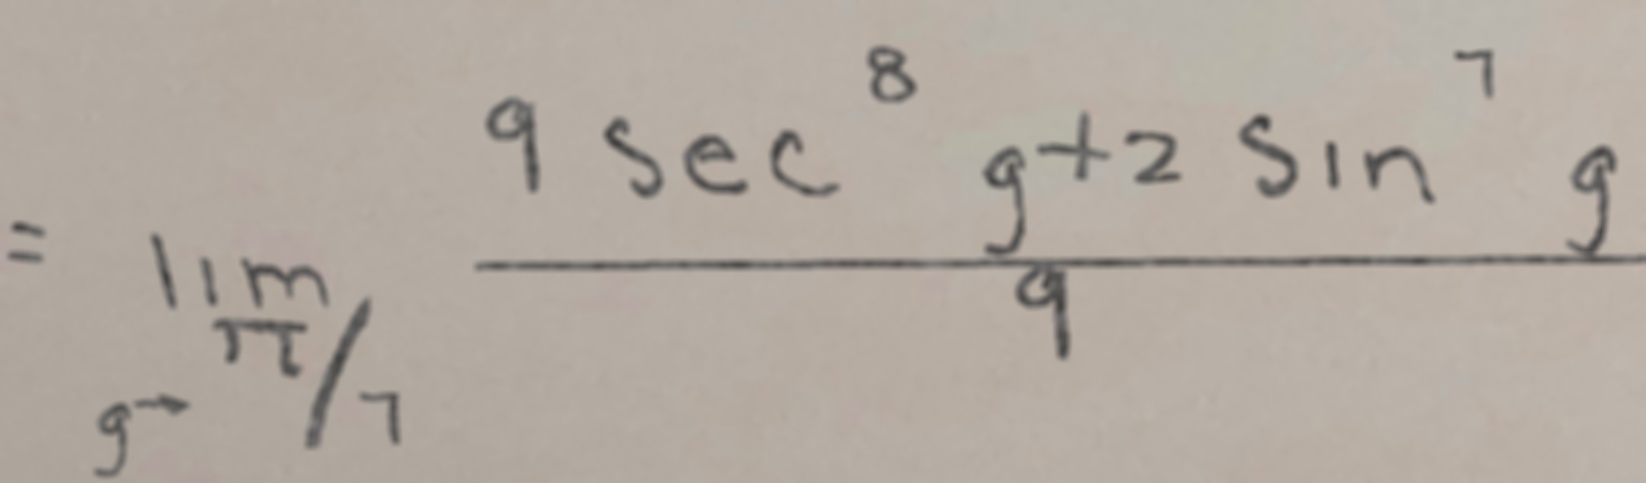 = \lim_{g \to \pi/7} \frac{9 \sec^8 g + 2 \sin^7 g}{9}